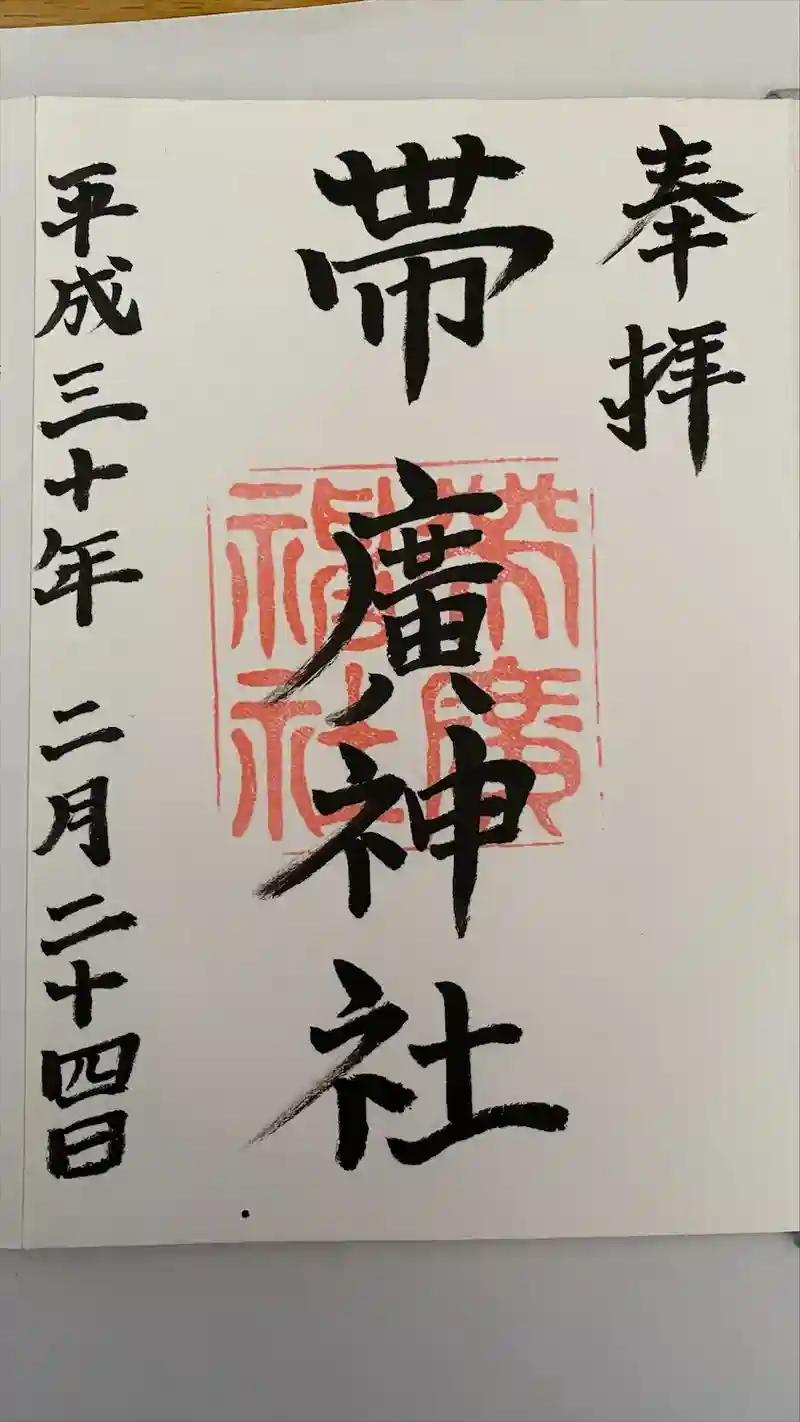 奉拝
帯廣神社
帯廣神社
平成三十年 二月二十四日